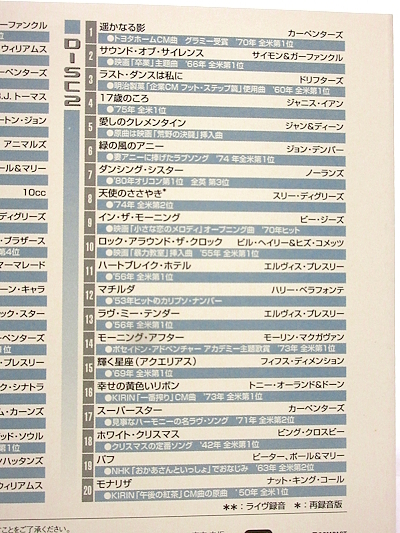 ーファンクル
ウィリアムス
ーペンターズ
B.J. トーマス
ートン・ジョン
アニマルズ
ール&マリー
10cc
ディグリーズ
・ブラザース
第4位
ーマーマレード
ーン・キャラ
ック・スター
ーペンターズ
・プレスリー
ク・シナトラ
ム・カーンズ
ッド・ソウル
ンハッタンズ
ウィリアムス
DISC2
1 遥かなる影 カーペンターズ
●トヨタホームCM曲 グラミー受賞 '70年 全米第1位
2 サウンド・オブ・サイレンス サイモン&ガーファンクル
●映画「卒業」主題曲 '66年 全米第1位
3 ラスト・ダンスは私に ドリフターズ
●明治製菓「企業CM フット・ステップ篇」使用曲 '60年 全米第1位
4 17歳のころ ジャニス・イアン
●'75年 全米1位
5 愛しのクレメンタイン ジャン&ディーン
●原曲は映画「荒野の決闘」挿入曲
6 緑の風のアニー ジョン・デンバー
●妻アニーに捧げたラブソング '74年 全米第1位
7 ダンシング・シスター ノーランズ
●'80年オリコン第1位 全英 第3位
8 天使のささやき* スリー・ディグリーズ
●'74年 全米第2位
9 イン・ザ・モーニング ビー・ジーズ
●映画「小さな恋のメロディ」オープニング曲 '70年ヒット
10 ロック・アラウンド・ザ・クロック ビル・ヘイリー&ヒズ・コメッツ
●映画「暴力教室」挿入曲 '55年 全米第1位
11 ハートブレイク・ホテル エルヴィス・プレスリー
●'56年 全米第1位
12 マチルダ ハリー・ベラフォンテ
●'53年ヒットのカリプソ・ナンバー
13 ラヴ・ミー・テンダー エルヴィス・プレスリー
●'56年 全米第1位
14 モーニング・アフター モーリン・マクガヴァン
●ポセイドン・アドベンチャー アカデミー主題歌賞 '73年 全米第1位
15 輝く星座(アクエリアス) フィフス・ディメンション
●'69年 全米第1位
16 幸せの黄色いリボン トニー・オーランド&ドーン
●KIRIN「一番搾り」CM曲 '73年 全米第1位
17 スーパースター カーペンターズ
●見事なハーモニーの名ラヴ・ソング '71年 全米第2位
18 ホワイト・クリスマス ビング・クロスビー
●クリスマスの定番ソング '42年 全米第1位
19 パフ ピーター、ポール&マリー
●NHK「おかあさんといっしょ」でおなじみ '63年 全米第2位
20 モナリザ ナット・キング・コール
●KIRIN「午後の紅茶」CM曲の原曲 '50年 全米1位
**:ライヴ録音 *:再録音版
すことをご了承ください。